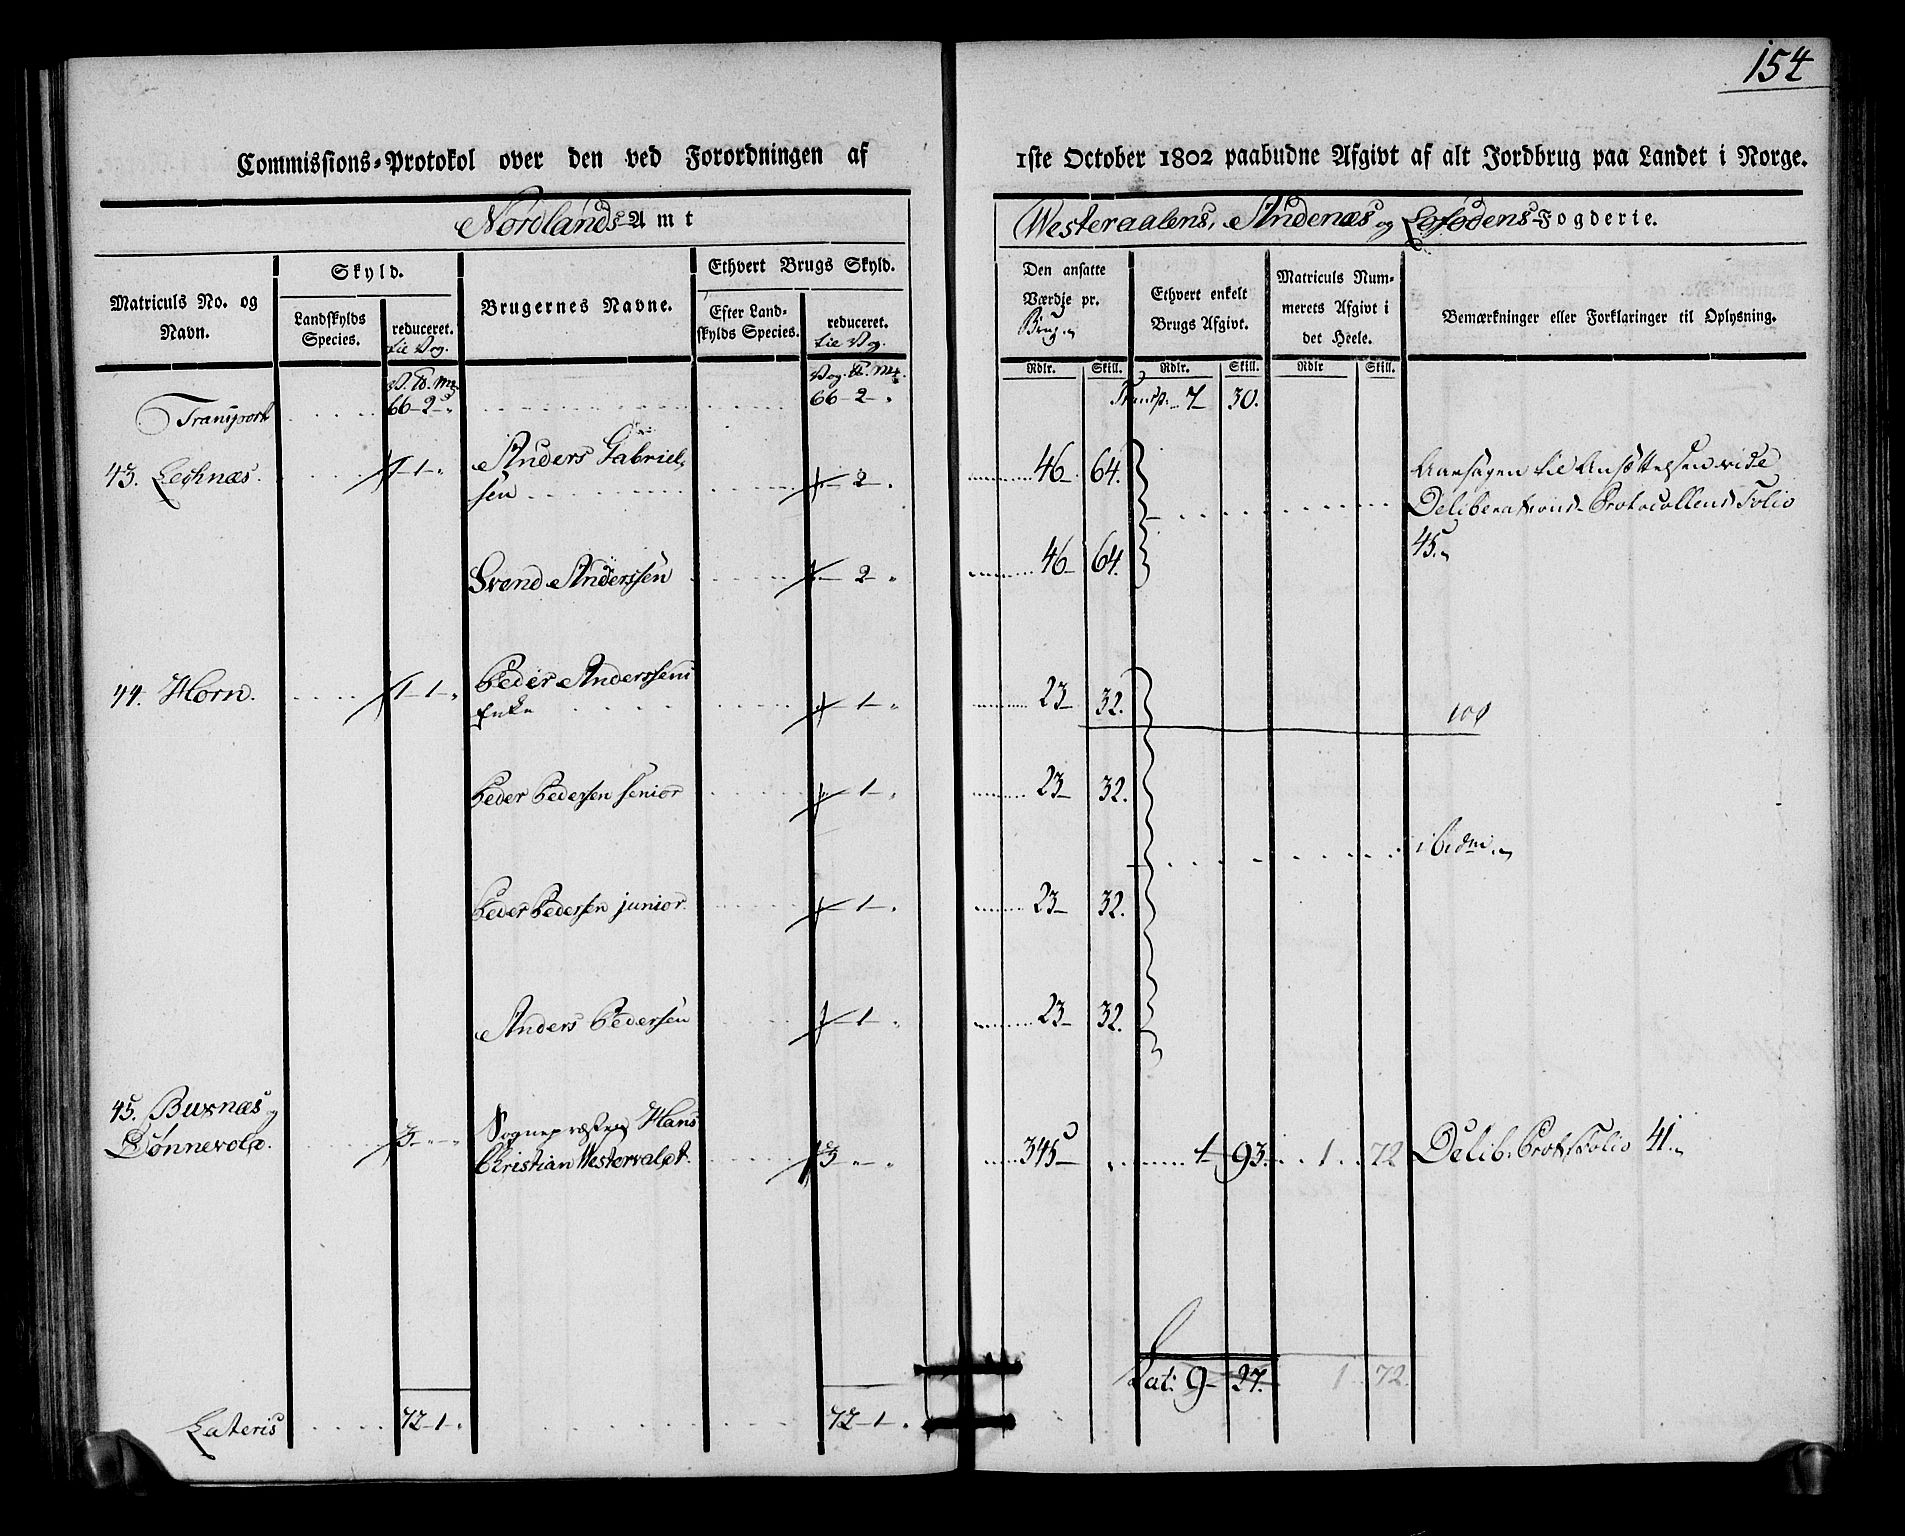 154
Commissions-Protokol over den ved Forordningen af 1ste October 1802 paabudne Afgivt af alt Jordbrug paa Landet i Norge.
Nordlands-Amt
Westeraalens, Andenæs og Lofodens-Fogderie.
Matriculs No. og Navn.
Skyld.
Landskylds Species.
reduceret. til Vog.
Brugernes Navne.
Ethvert Brugs Skyld.
Efter Landskylds Species.
reduceret. til Vog.
Den ansatte Værdie pr. Brug
Ethvert enkelt Brugs Afgivt.
Matriculs Nummerets Afgivt i det Heele.
Bemærkninger eller Forklaringer til Oplysning.
Rdlr. Skill. Rdlr. Skill. Rdlr Skill.
V. ℔. Mk Vog. ℔. Mk.
Transport 66-2-" 66-2-" Transp. 7 30.
43. Leknæs. 1-" Anders Gabriel-
sen 2-" 46 64. Aarsagen til Ansættelsen vide
Deliberations-Protocollens Folio
45.
Svend Anderssen 2-" 46 64.
44. Horn. 1-1-" Peder Anderssens
Enke 1-" 23 32.
Peder Pedersen senior 1-" 23 32.
ibidm.
Peder Pedersen junior 1-" 23 32.
Anders Pedersen 1-" 23 32.
45. Buxnæs og
Dønnevold. 3-"-" Sognepræsten Hans
Christian Westervaldt. 3-"-" 345 1 93. 1 72 Delib. Prot. Folio 41.
Lat: 9-27. 1 72.
Lateris 72-1-" 72-1-"